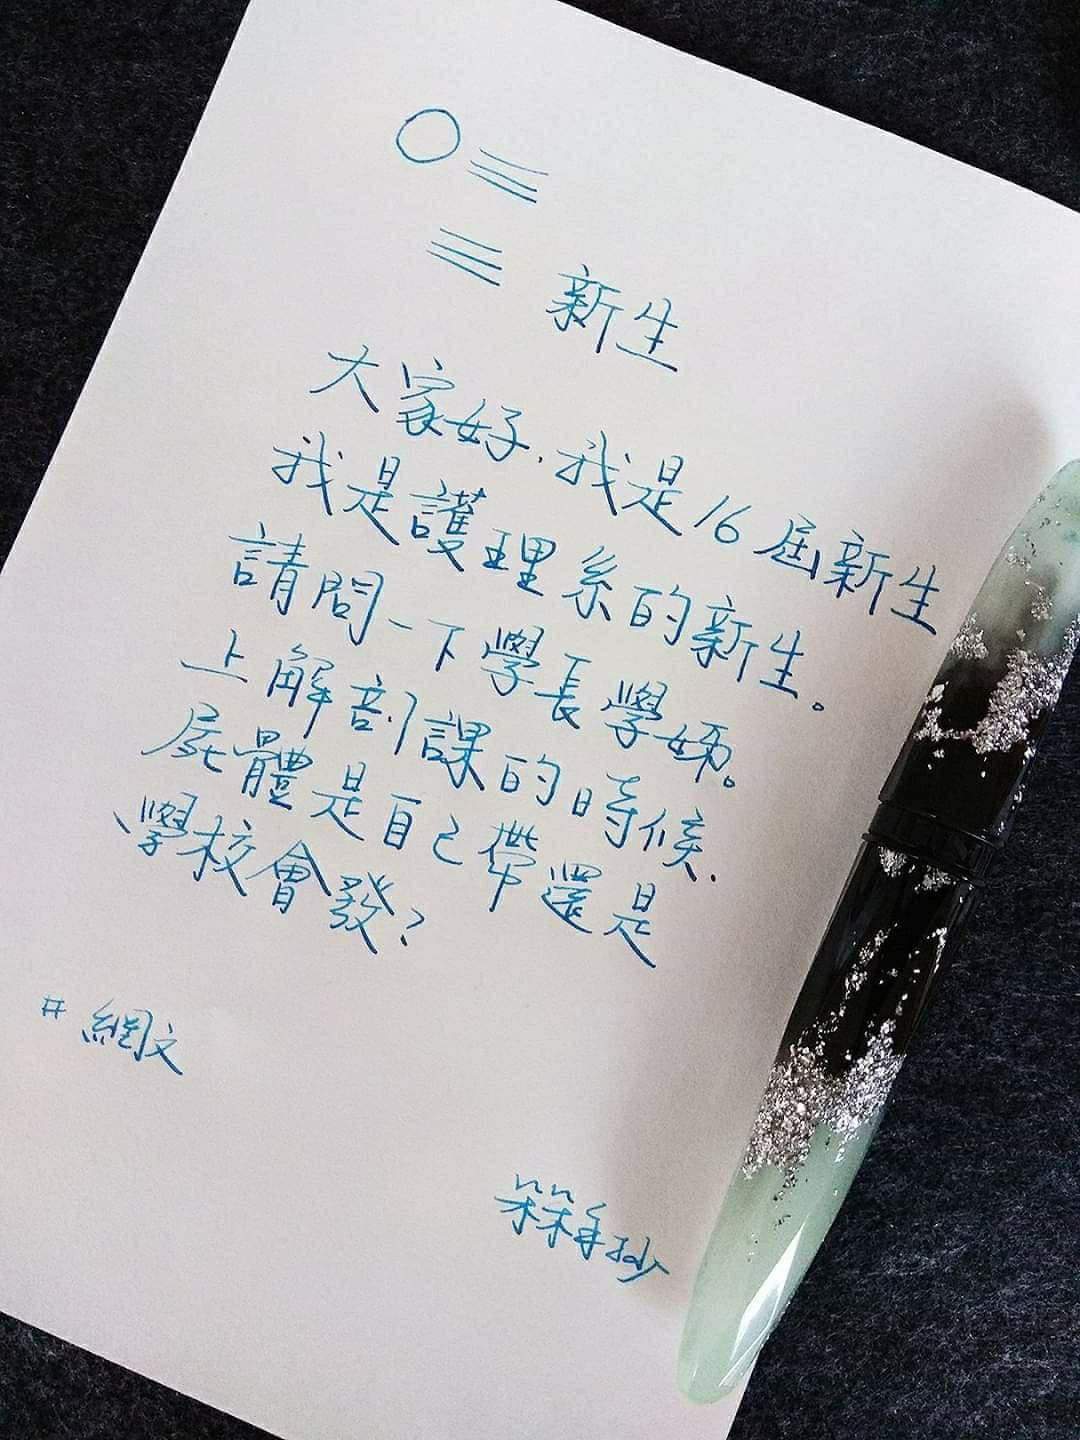 新生
大家好,我是16屆新生
我是護理系的新生。
請問一下學長學姊。
上解剖課的時候,
屍體是自己帶還是
學校會發?
#網文
箂箂手抄